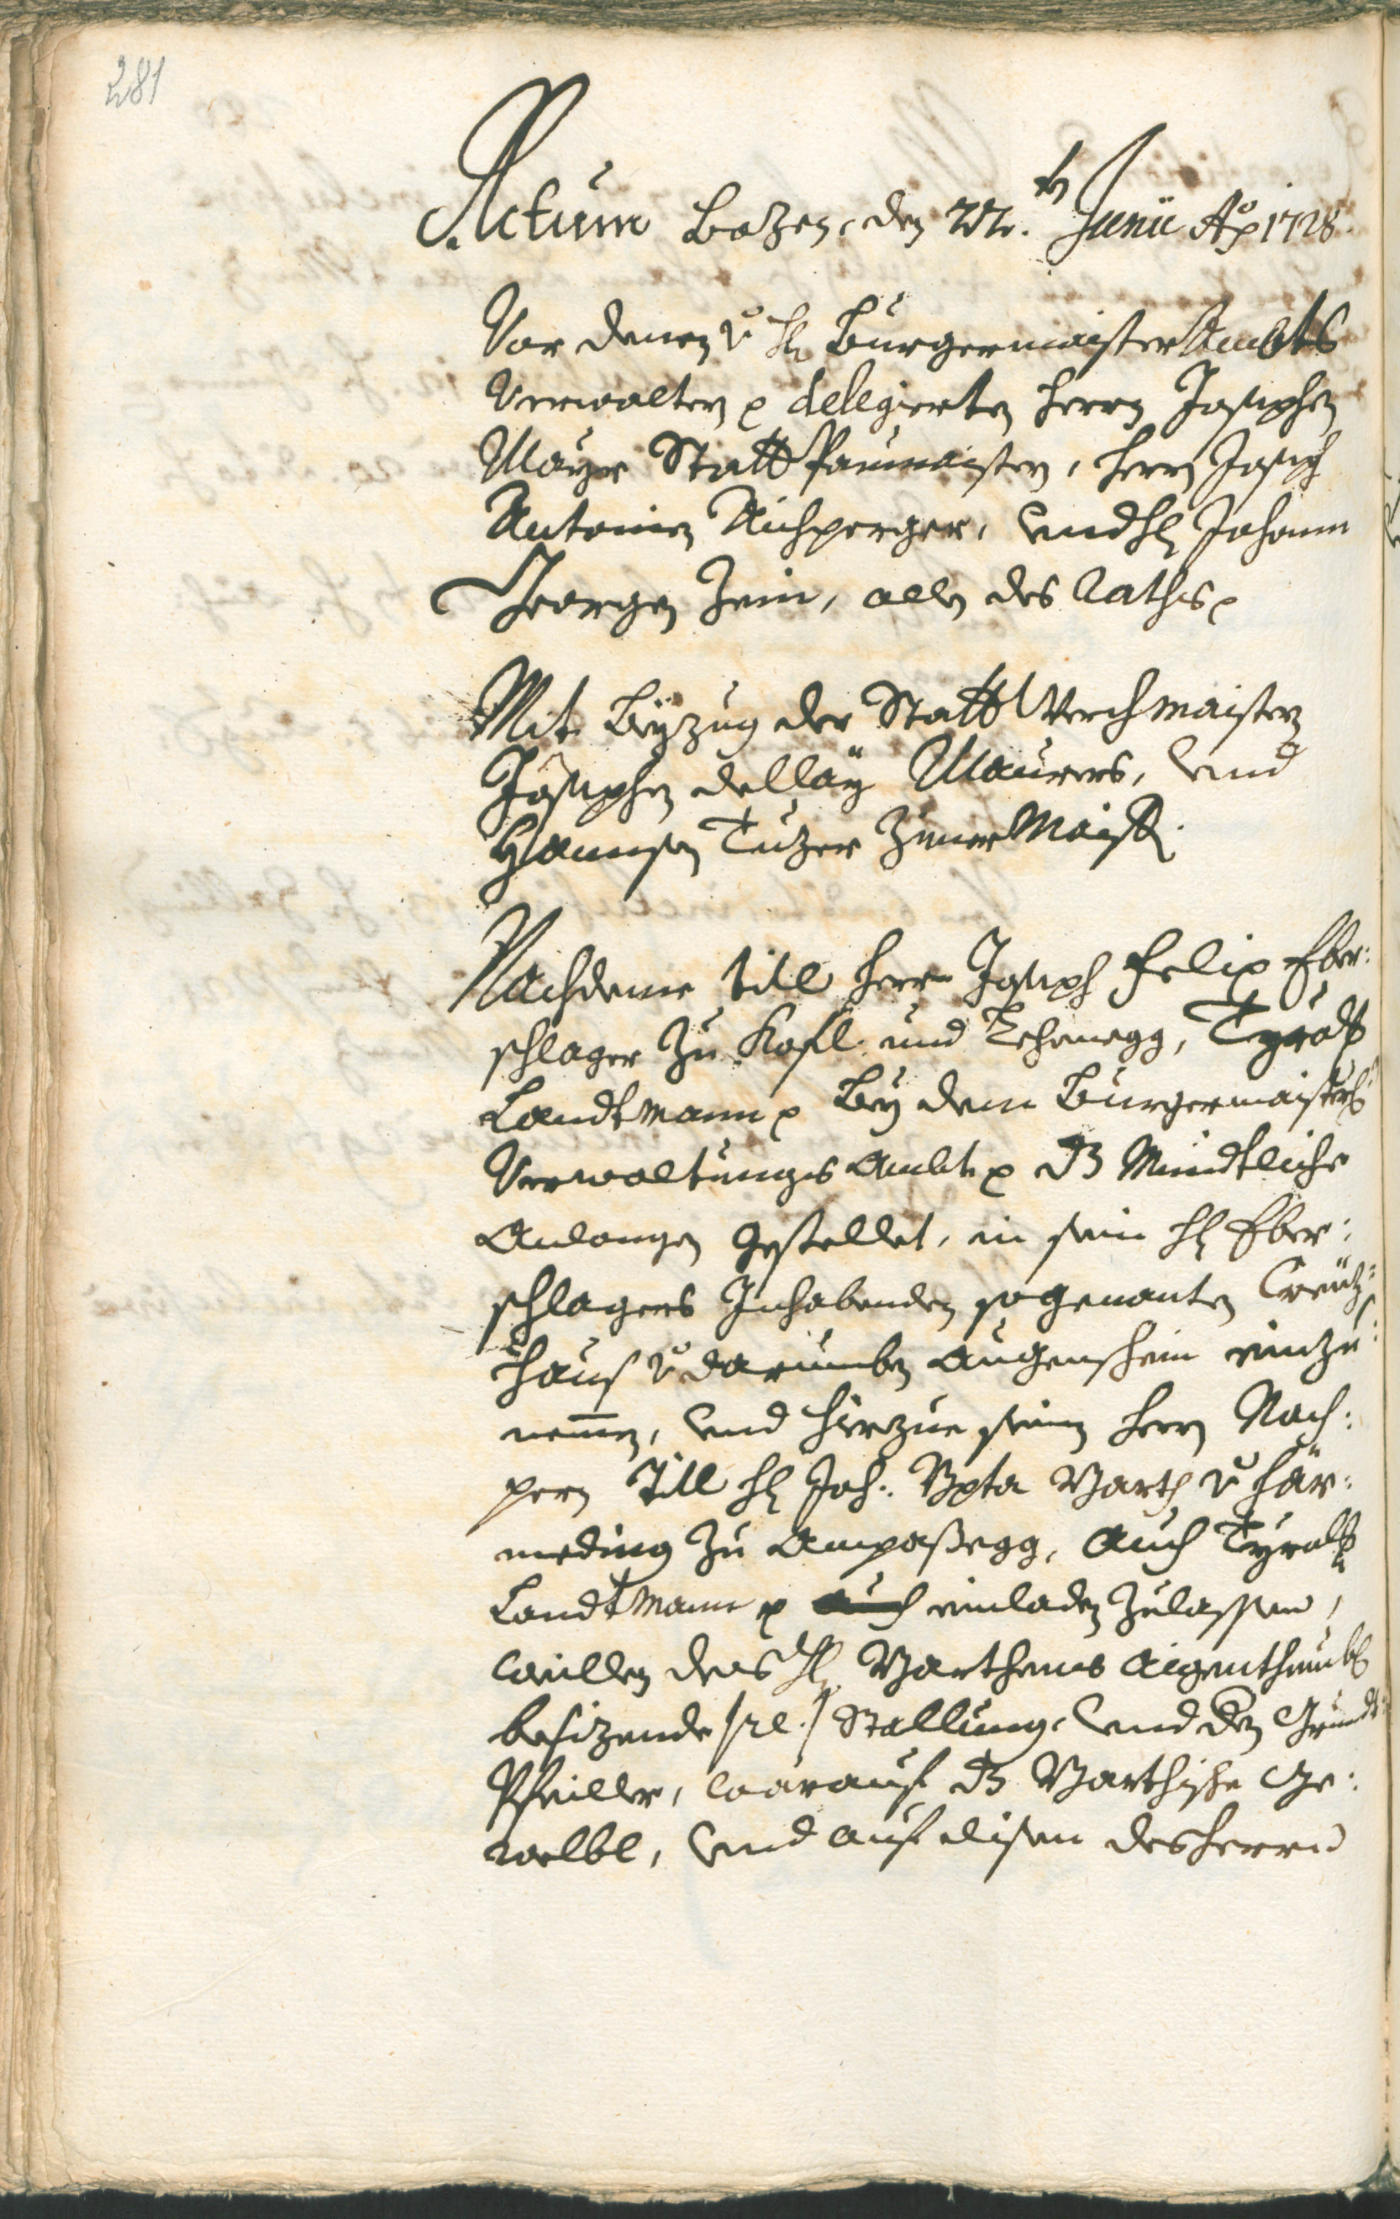 281
Actum Bozen, den 22.ten Junii Ao 1728.
Vor denen v: Hl Burgermaister Ambts
Verwalter p delegierten Herrn Josephen
Mayr Statt Paumaistern, Herrn Joseph
Antonien Aichperger, und Hl Johann
Georgen Zein, allen des Raths p
Mit Beyzug der Statt Werchmaistern
Josephen dellay Maurers, und
Hannsen Tuzer Zimermaistr.
Nachdeme titl Herr Joseph Felix Eber:
schlager zu Kofl und Lehenegg, Tyrolls
Landtmann p bey dem Burgermaisters
Verwaltungs Ambt p dz Mündtliche
Anlangen gestellet, in sein Hl Eber:
schlagers Inhabenden sogenanten Creüz:
haus v: darumben Augenschein einzu:
nemen, und hierzue seinen Herrn Nach:
pern Titl Hl Joh: Bpta Barth v: Här:
meding zu Ampaßegg, auch Tyrolls
Landtmann p einladen zulassen,
willen des Hl Barthens aigenthumbs
besizende /sal:/ Stallung, und den Grundt:
Pfeiller, warauf dz Barthische Ge:
welbl, und auf disem des Herrn